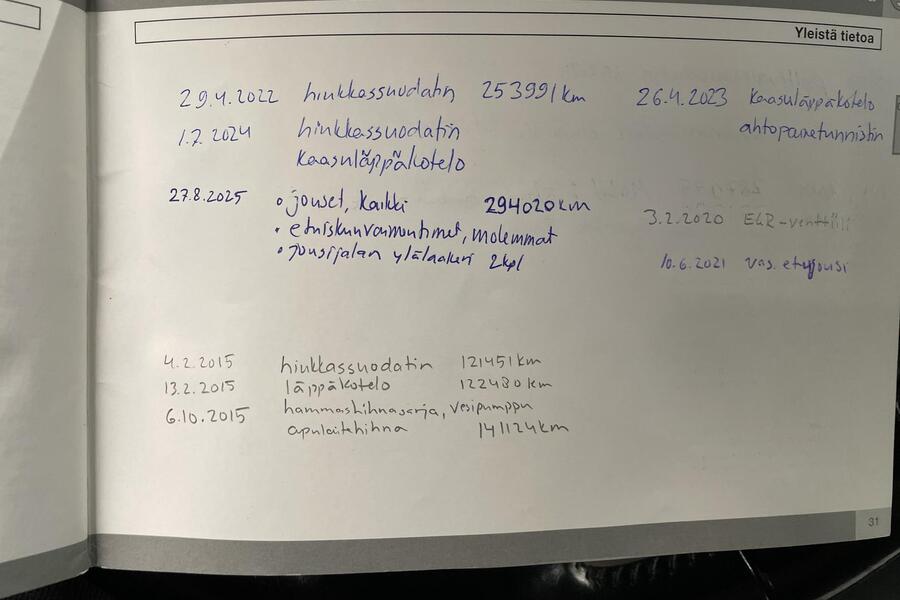 Yleistä tietoa
29.4.2022 hiukkassuodatin 253991 km
1.7.2024 hiukkassuodatin
kaasuläppäkotelo
27.8.2025 • jouset, kaikki 294020 km
• etuiskunvaimentimet, molemmat
• jousijalan ylälaakeri 2kpl
26.4.2023 kaasuläppäkotelo
ahtopainetunnistin
3.2.2020 EGR-venttiili
10.6.2021 vas. etujousi
4.2.2015 hiukkassuodatin 121451 km
13.2.2015 läppäkotelo 122480 km
6.10.2015 hammashihnasarja, vesipumppu
apulaitehihna 141124 km
31